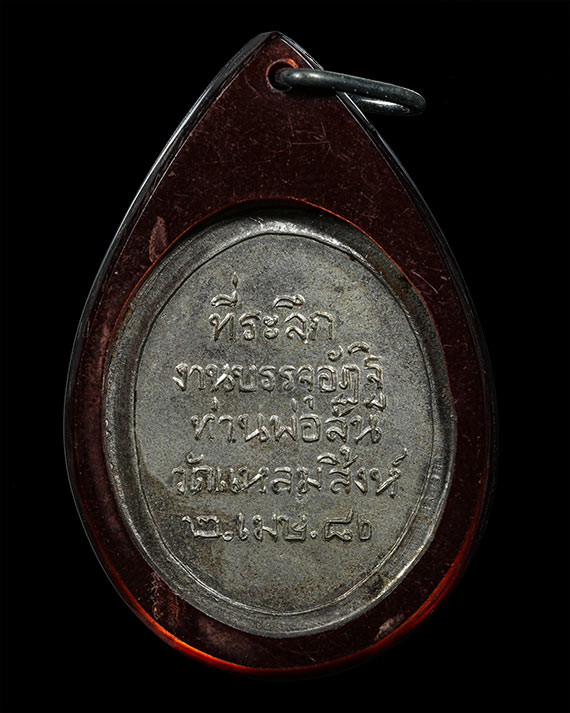 ที่ระลึก
งานบรรจุอัฏฐิ
ท่านพ่อสิ้น
วัดแหลมสิงห์
๒.เมษ.๘๑